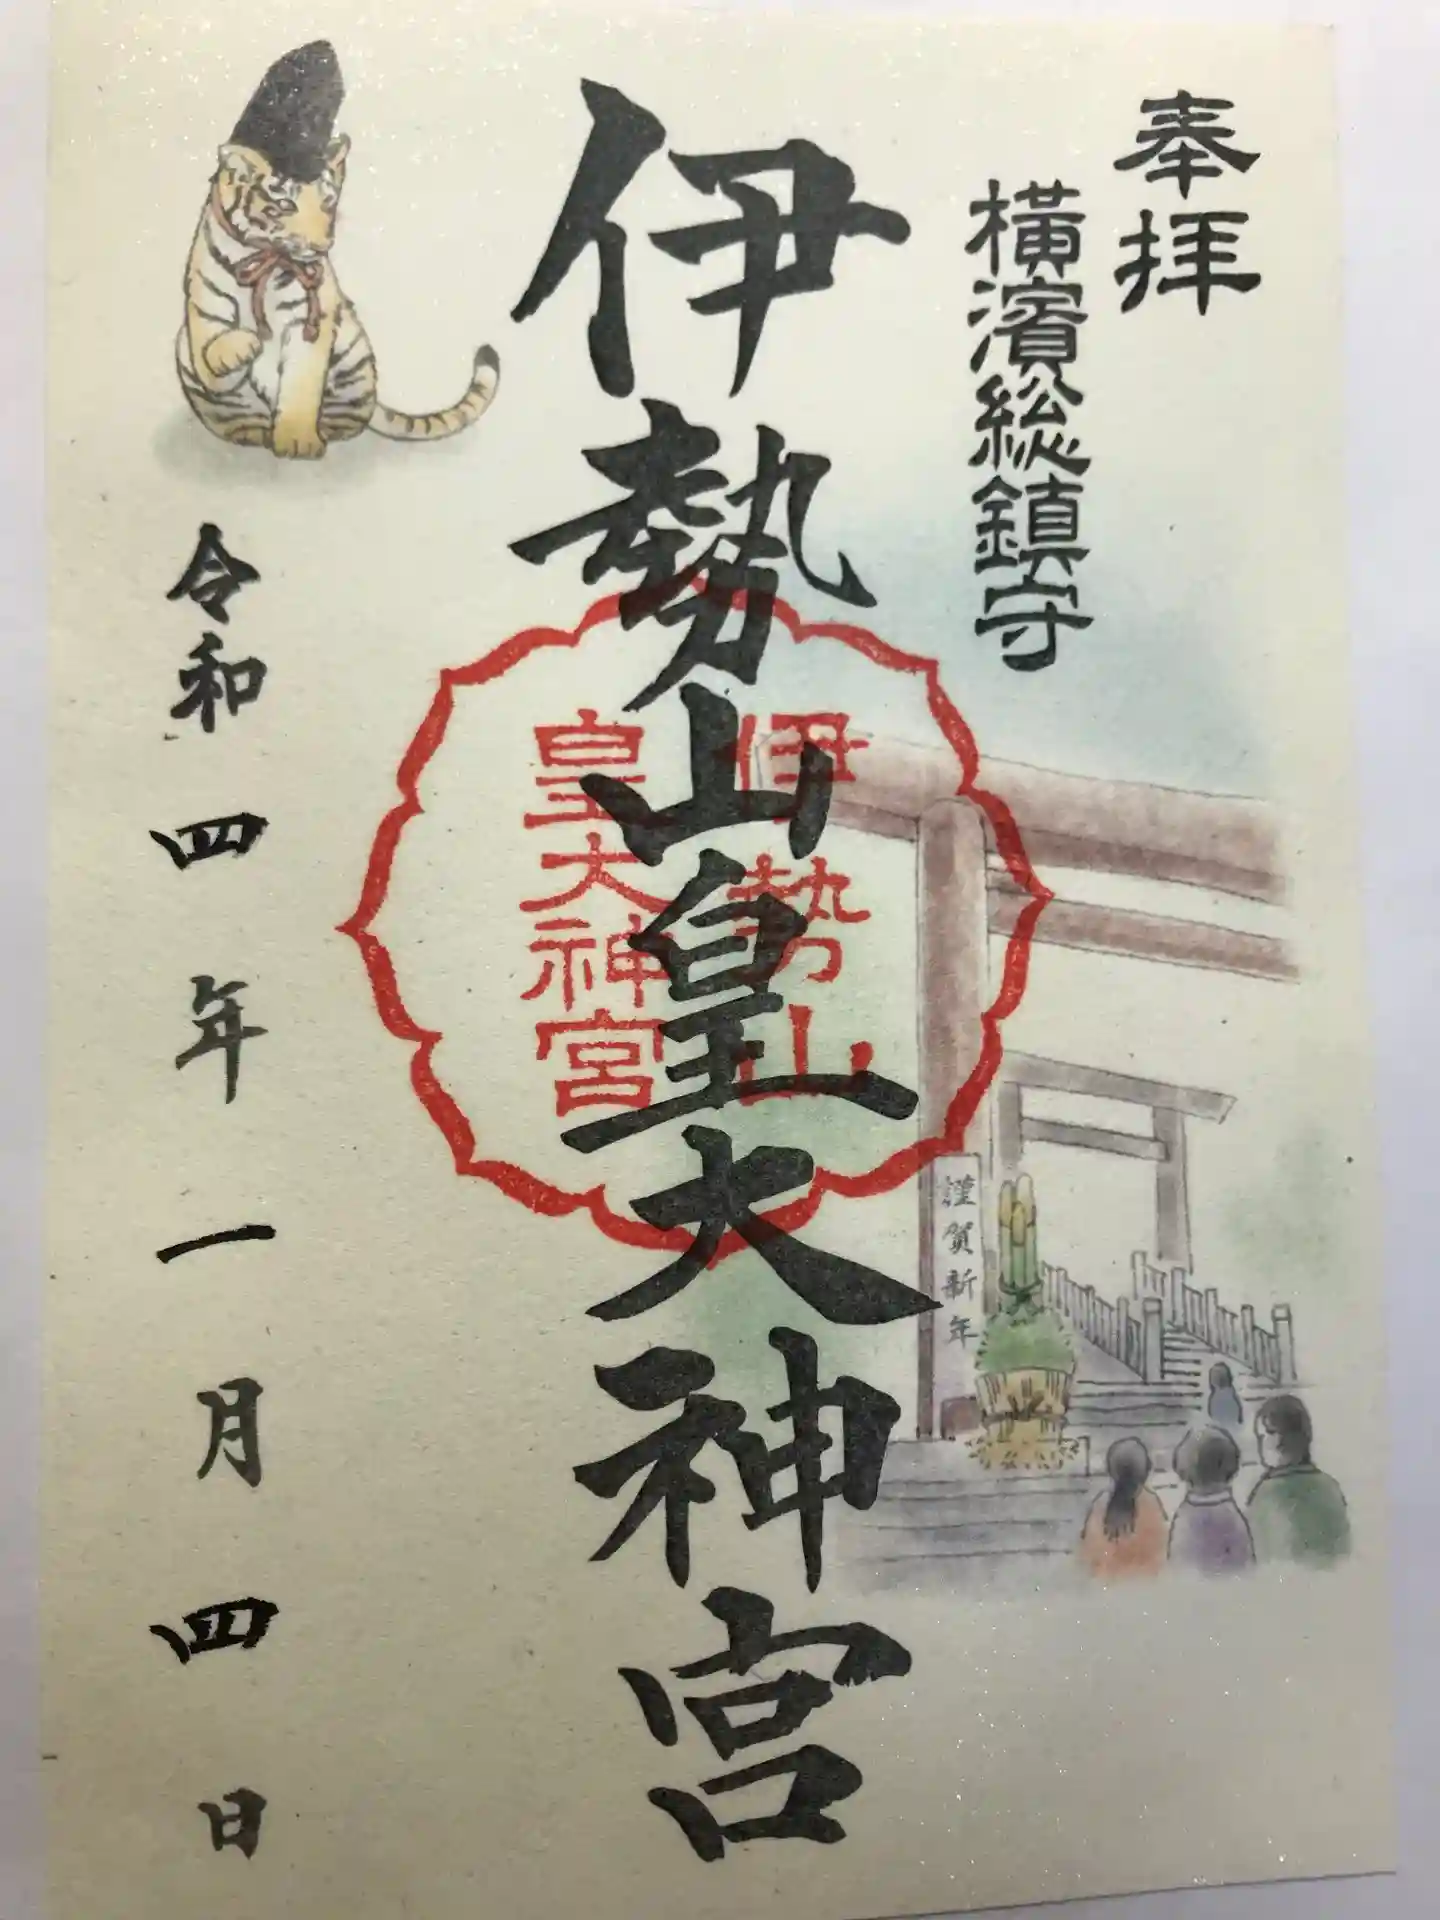 奉拝
横濱総鎮守
伊勢山皇大神宮
伊勢山
皇大神宮
謹賀新年
令和四年一月四日